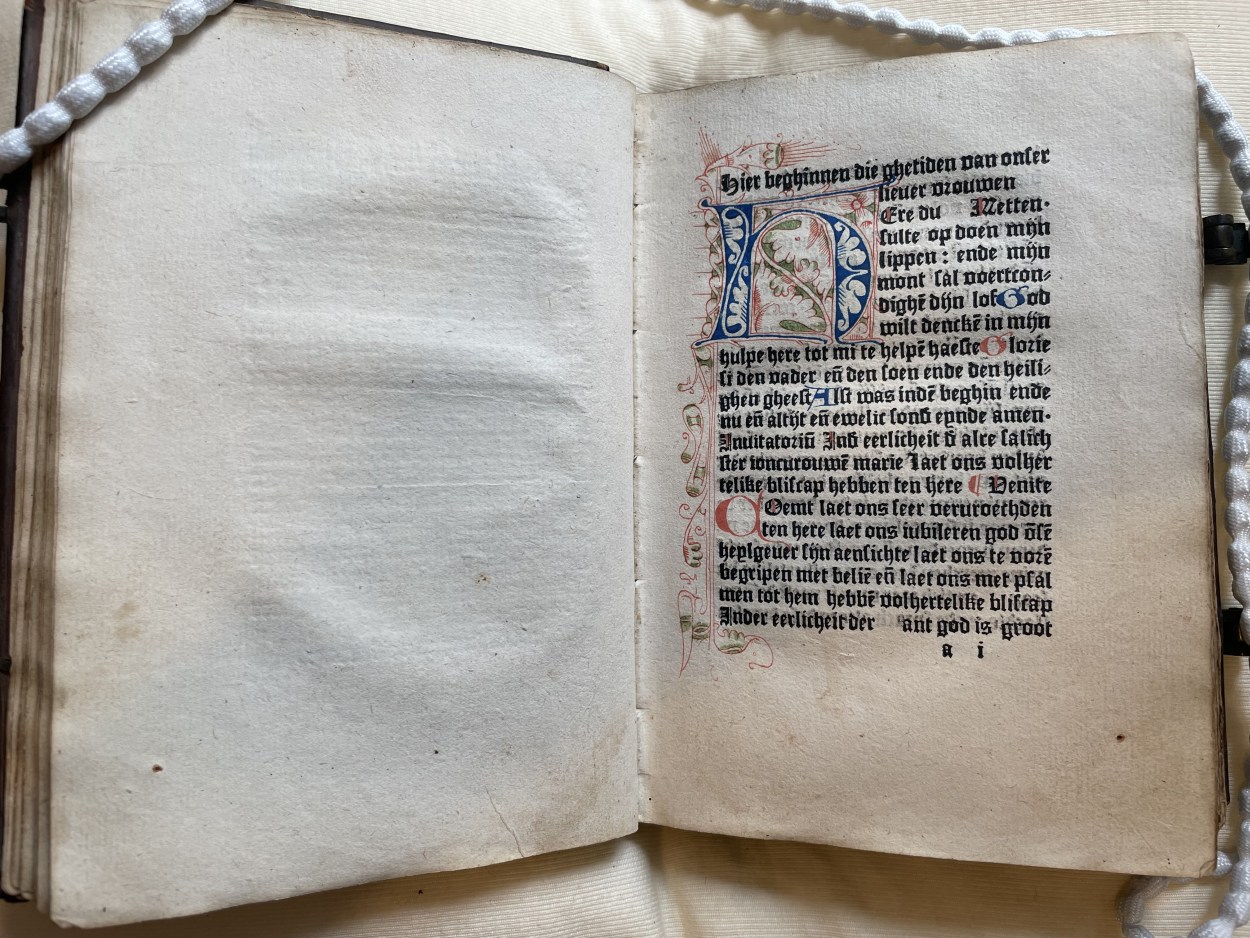 Hier beghinnen die ghetiden van onser
lieuer vrouwen
HEre du Metten·
sulte op doen mijn
lippen : ende mijn
mont sal voertcon⸗
dighē dijn lof God
wilt denckē in mijn
hulpe here tot mi te helpē haeste Glorie
si den vader eñ den soen ende den heili⸗
ghen gheest Alst was indē beghin ende
nu eñ altijt eñ ewelic sonđ eynde amen·
Inuitatoriū Inđ eerlicheit đ alre salich
ster ioncurouwē marie laet ons volher
telike bliscap hebben ten here Venite
COemt laet ons seer veruroechden
ten here laet ons iubileren god ōsē
heylgeuer sijn aensichte laet ons te vorē
begripen met beliē eñ laet ons met psal
men tot hem hebbē volhertelike bliscap
Inder eerlicheit der ant god is groot
a i